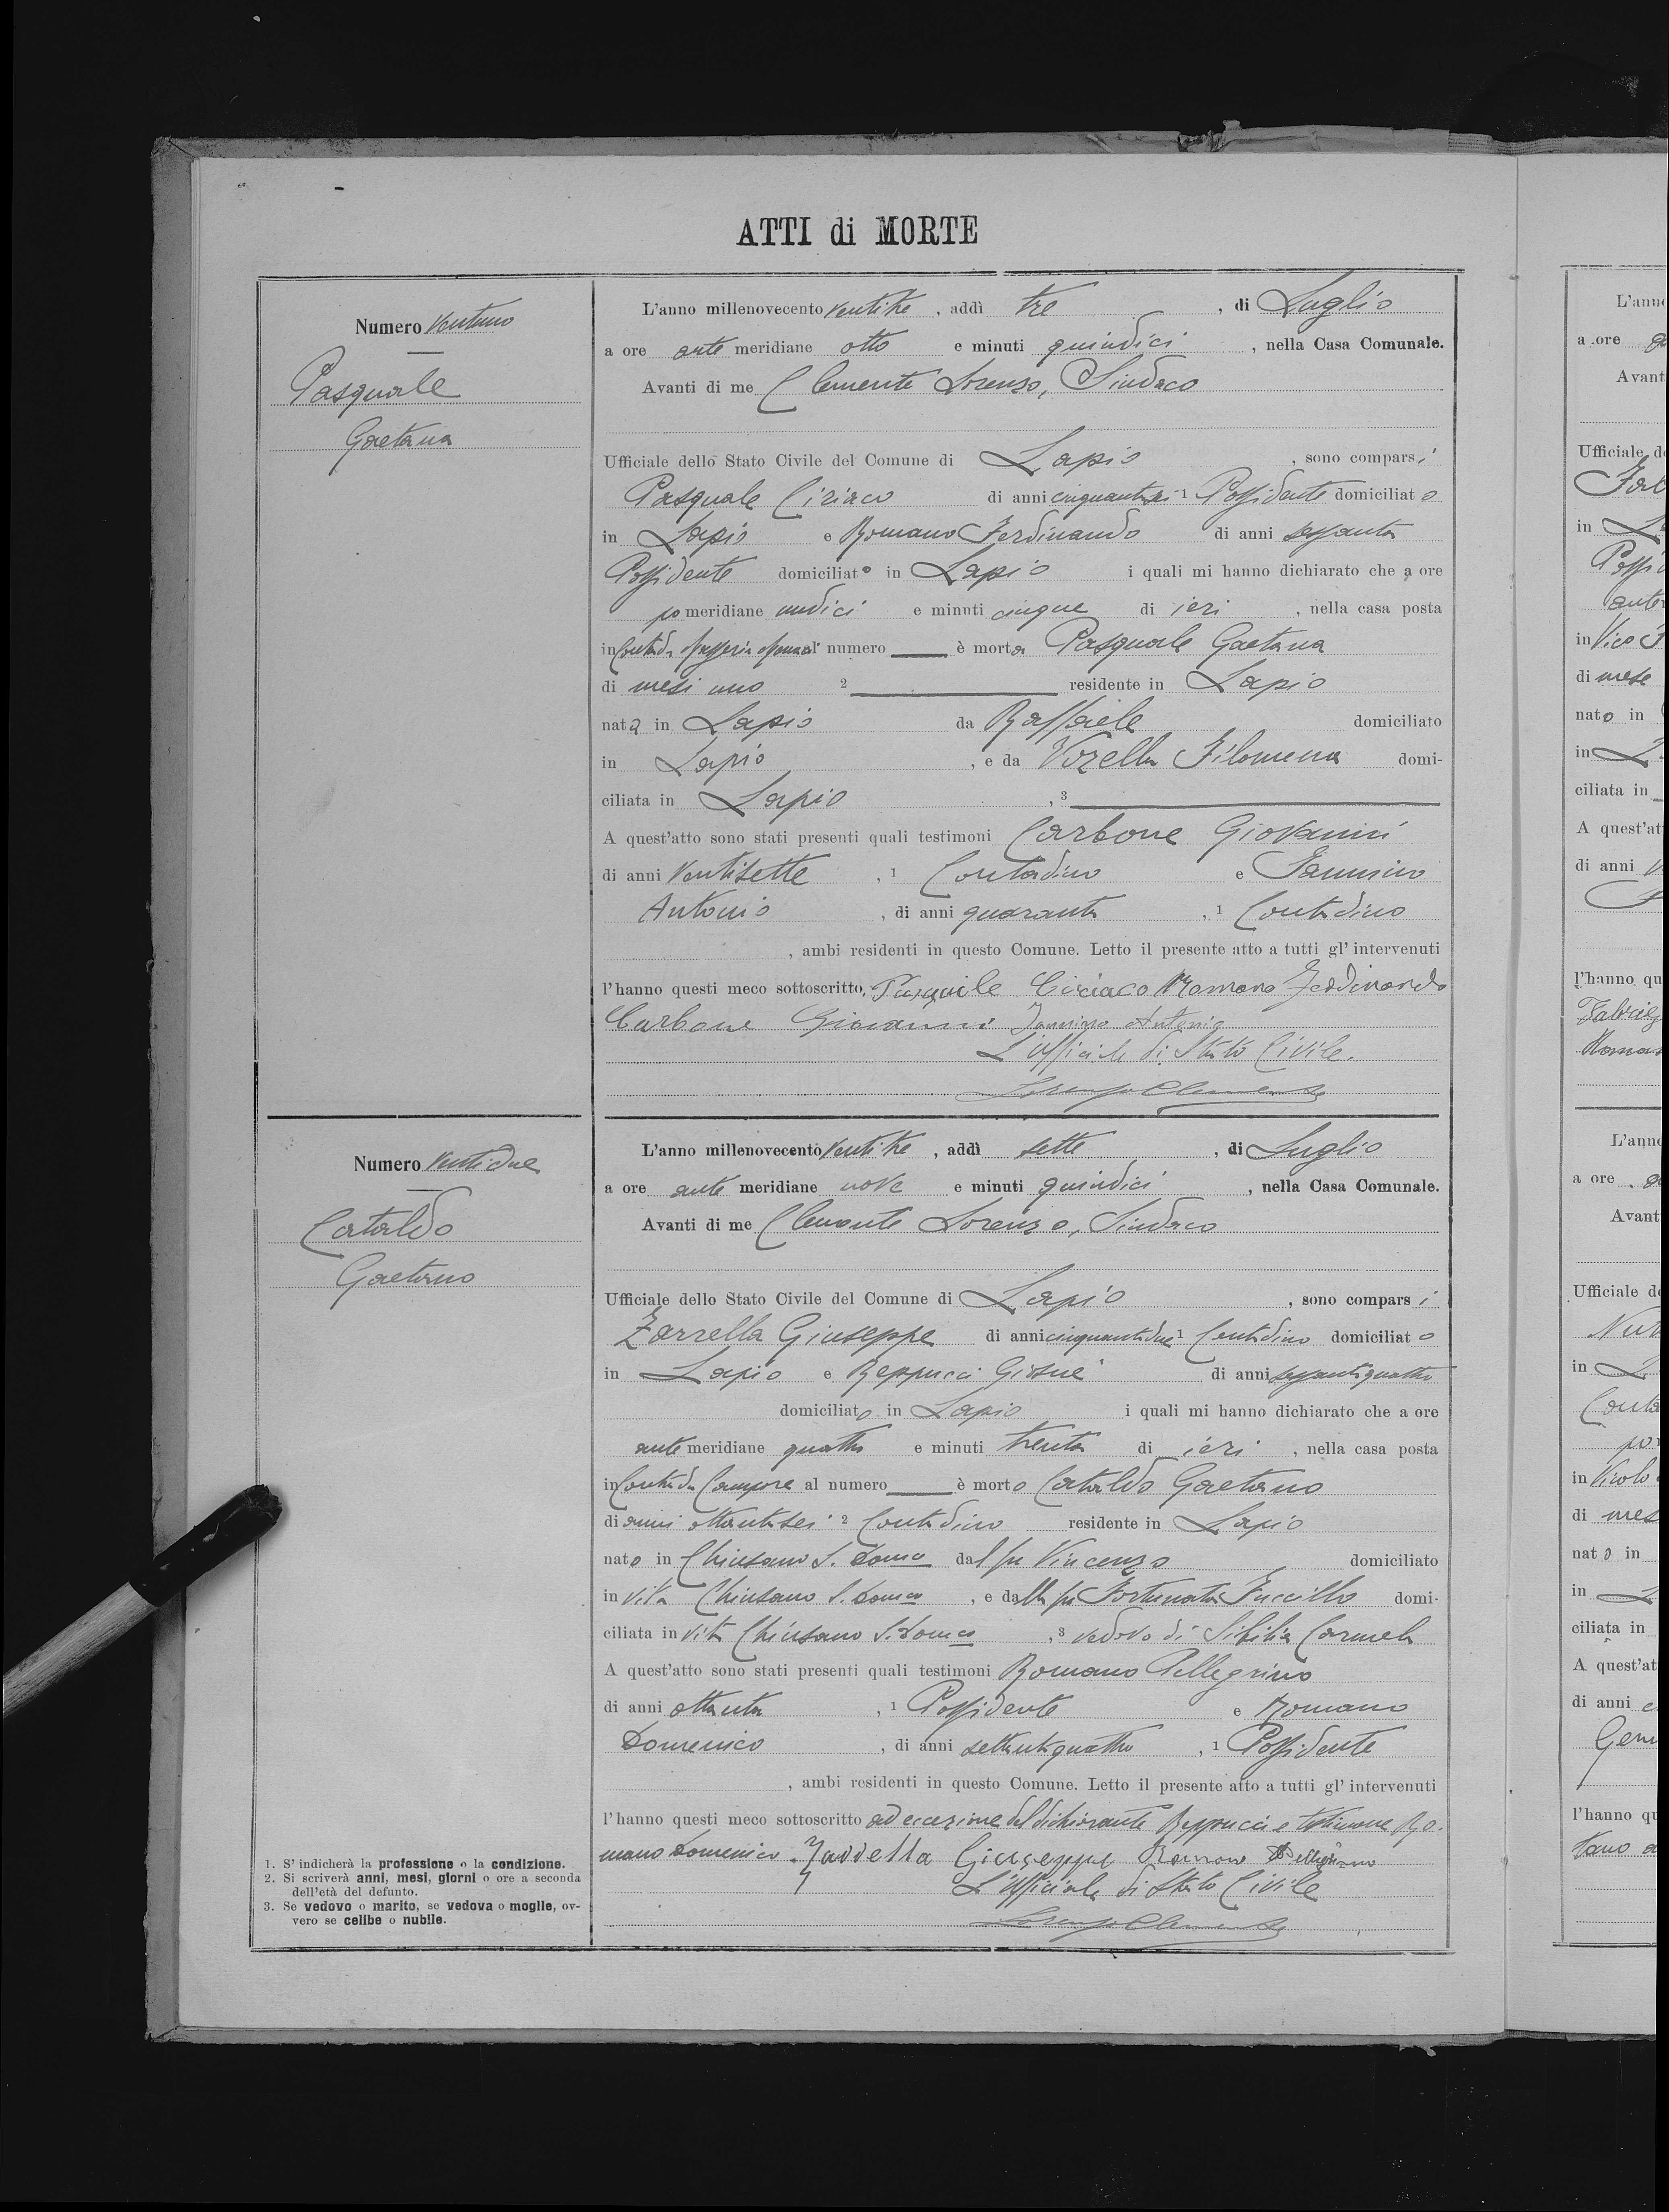 ATTI di MORTE
Numero Ventuno
Pasquale
Gaetana
L'anno millenovecento ventitre, addì tre, di Luglio
a ore ante meridiane otto e minuti quindici, nella Casa Comunale.
Avanti di me Clemente Lorenzo, Sindaco
Ufficiale dello Stato Civile del Comune di Lapio, sono comparsi
Pasquale Ciriaco di anni cinquantasei 1 Possidente domiciliato
in Lapio e Romano Ferdinando di anni sessanta
Possidente domiciliato in Lapio i quali mi hanno dichiarato che a ore
pomeridiane undici e minuti cinque di ieri, nella casa posta
in Contrada numero è morta Pasquale Gaetana
di mesi uno 2 residente in Lapio
nata in Lapio da Raffaele domiciliato
in Lapio, e da Vozella Filomena domi-
ciliata in Lapio, 3
A quest'atto sono stati presenti quali testimoni Carbone Giovanni
di anni ventisette, 1 Contadino e Iannino
Antonio, di anni quaranta, 1 Contadino
, ambi residenti in questo Comune. Letto il presente atto a tutti gl' intervenuti
l'hanno questi meco sottoscritto. Pasquale Ciriaco Romano Ferdinando
Carbone Giovanni Iannino Antonio
L'Ufficiale di Stato Civile.
Lorenzo Clemente
Numero Ventidue
Cataldo
Gaetano
L'anno millenovecento ventitre, addì sette, di Luglio
a ore ante meridiane nove e minuti quindici, nella Casa Comunale.
Avanti di me Clemente Lorenzo, Sindaco
Ufficiale dello Stato Civile del Comune di Lapio, sono comparsi
Zarrella Giuseppe di anni cinquantadue 1 Contadino domiciliato
in Lapio e Reppucci Giosuè di anni sessantaquattro
domiciliato in Lapio i quali mi hanno dichiarato che a ore
ante meridiane quattro e minuti trenta di ieri, nella casa posta
in Contrada Campore al numero è morto Cataldo Gaetano
di anni ottantasei 2 Contadino residente in Lapio
nato in Chiusano S. Dom.co dal fu Vincenzo domiciliato
in vita Chiusano S. Dom.co, e dalla fu Fortunata Fuccillo domi-
ciliata in vita Chiusano S. Dom.co, 3 vedovo di Sibilia Carmela
A quest'atto sono stati presenti quali testimoni Romano Pellegrino
di anni ottanta, 1 Possidente e Romano
Domenico, di anni settantaquattro, 1 Possidente
, ambi residenti in questo Comune. Letto il presente atto a tutti gl' intervenuti
l'hanno questi meco sottoscritto ad eccezione del dichiarante Reppucci e testimone Ro-
mano Domenico. Zarrella Giuseppe Romano Pellegrino
L'Ufficiale di Stato Civile
Lorenzo Clemente
1. S' indicherà la professione o la condizione.
2. Si scriverà anni, mesi, giorni o ore a seconda
dell'età del defunto.
3. Se vedovo o marito, se vedova o moglie, ov-
vero se celibe o nubile.
L'ann
a ore
Avant
Ufficiale d
in
in Vico
di mese
nato in
in
ciliata in
A quest'at
di anni
l'hanno qu
L'ann
a ore
Avant
Ufficiale d
in
in Vicolo
di mes
nato in
in
ciliata in
A quest'at
di anni
l'hanno qu